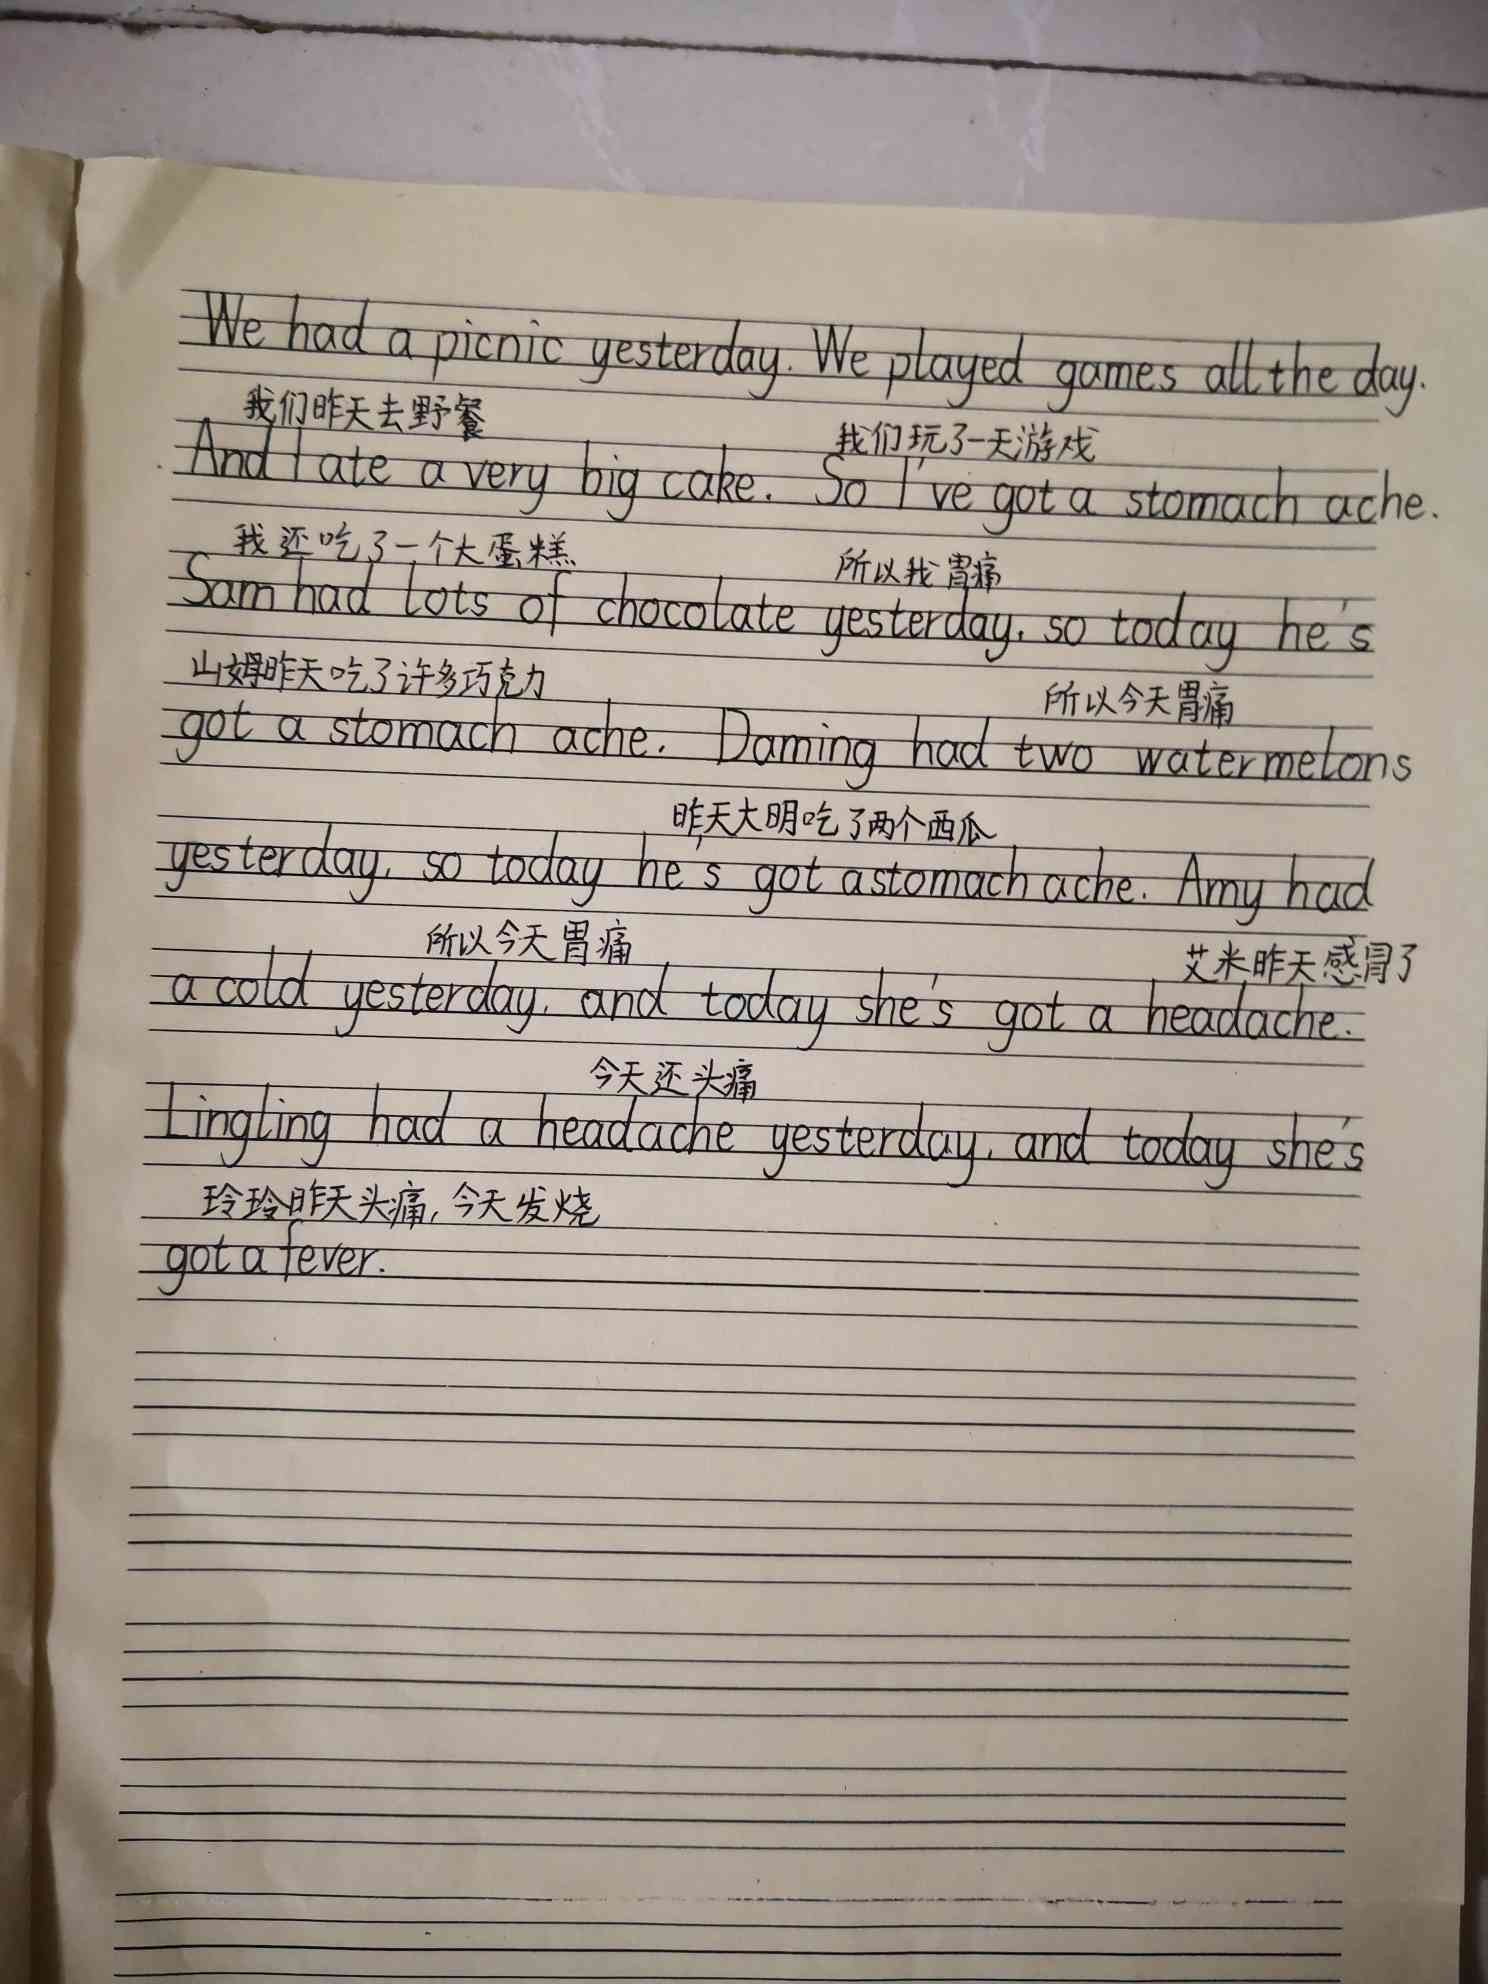 We had a picnic yesterday. We played games all the day.
我们昨天去野餐 我们玩了一天游戏
And I ate a very big cake. So I've got a stomach ache.
我还吃了一个大蛋糕 所以我胃痛
Sam had lots of chocolate yesterday, so today he's
山姆昨天吃了许多巧克力 所以今天胃痛
got a stomach ache. Daming had two watermelons
昨天大明吃了两个西瓜
yesterday, so today he's got a stomach ache. Amy had
所以今天胃痛 艾米昨天感冒了
a cold yesterday, and today she's got a headache.
今天还头痛
Lingling had a headache yesterday, and today she's
玲玲昨天头痛,今天发烧
got a fever.